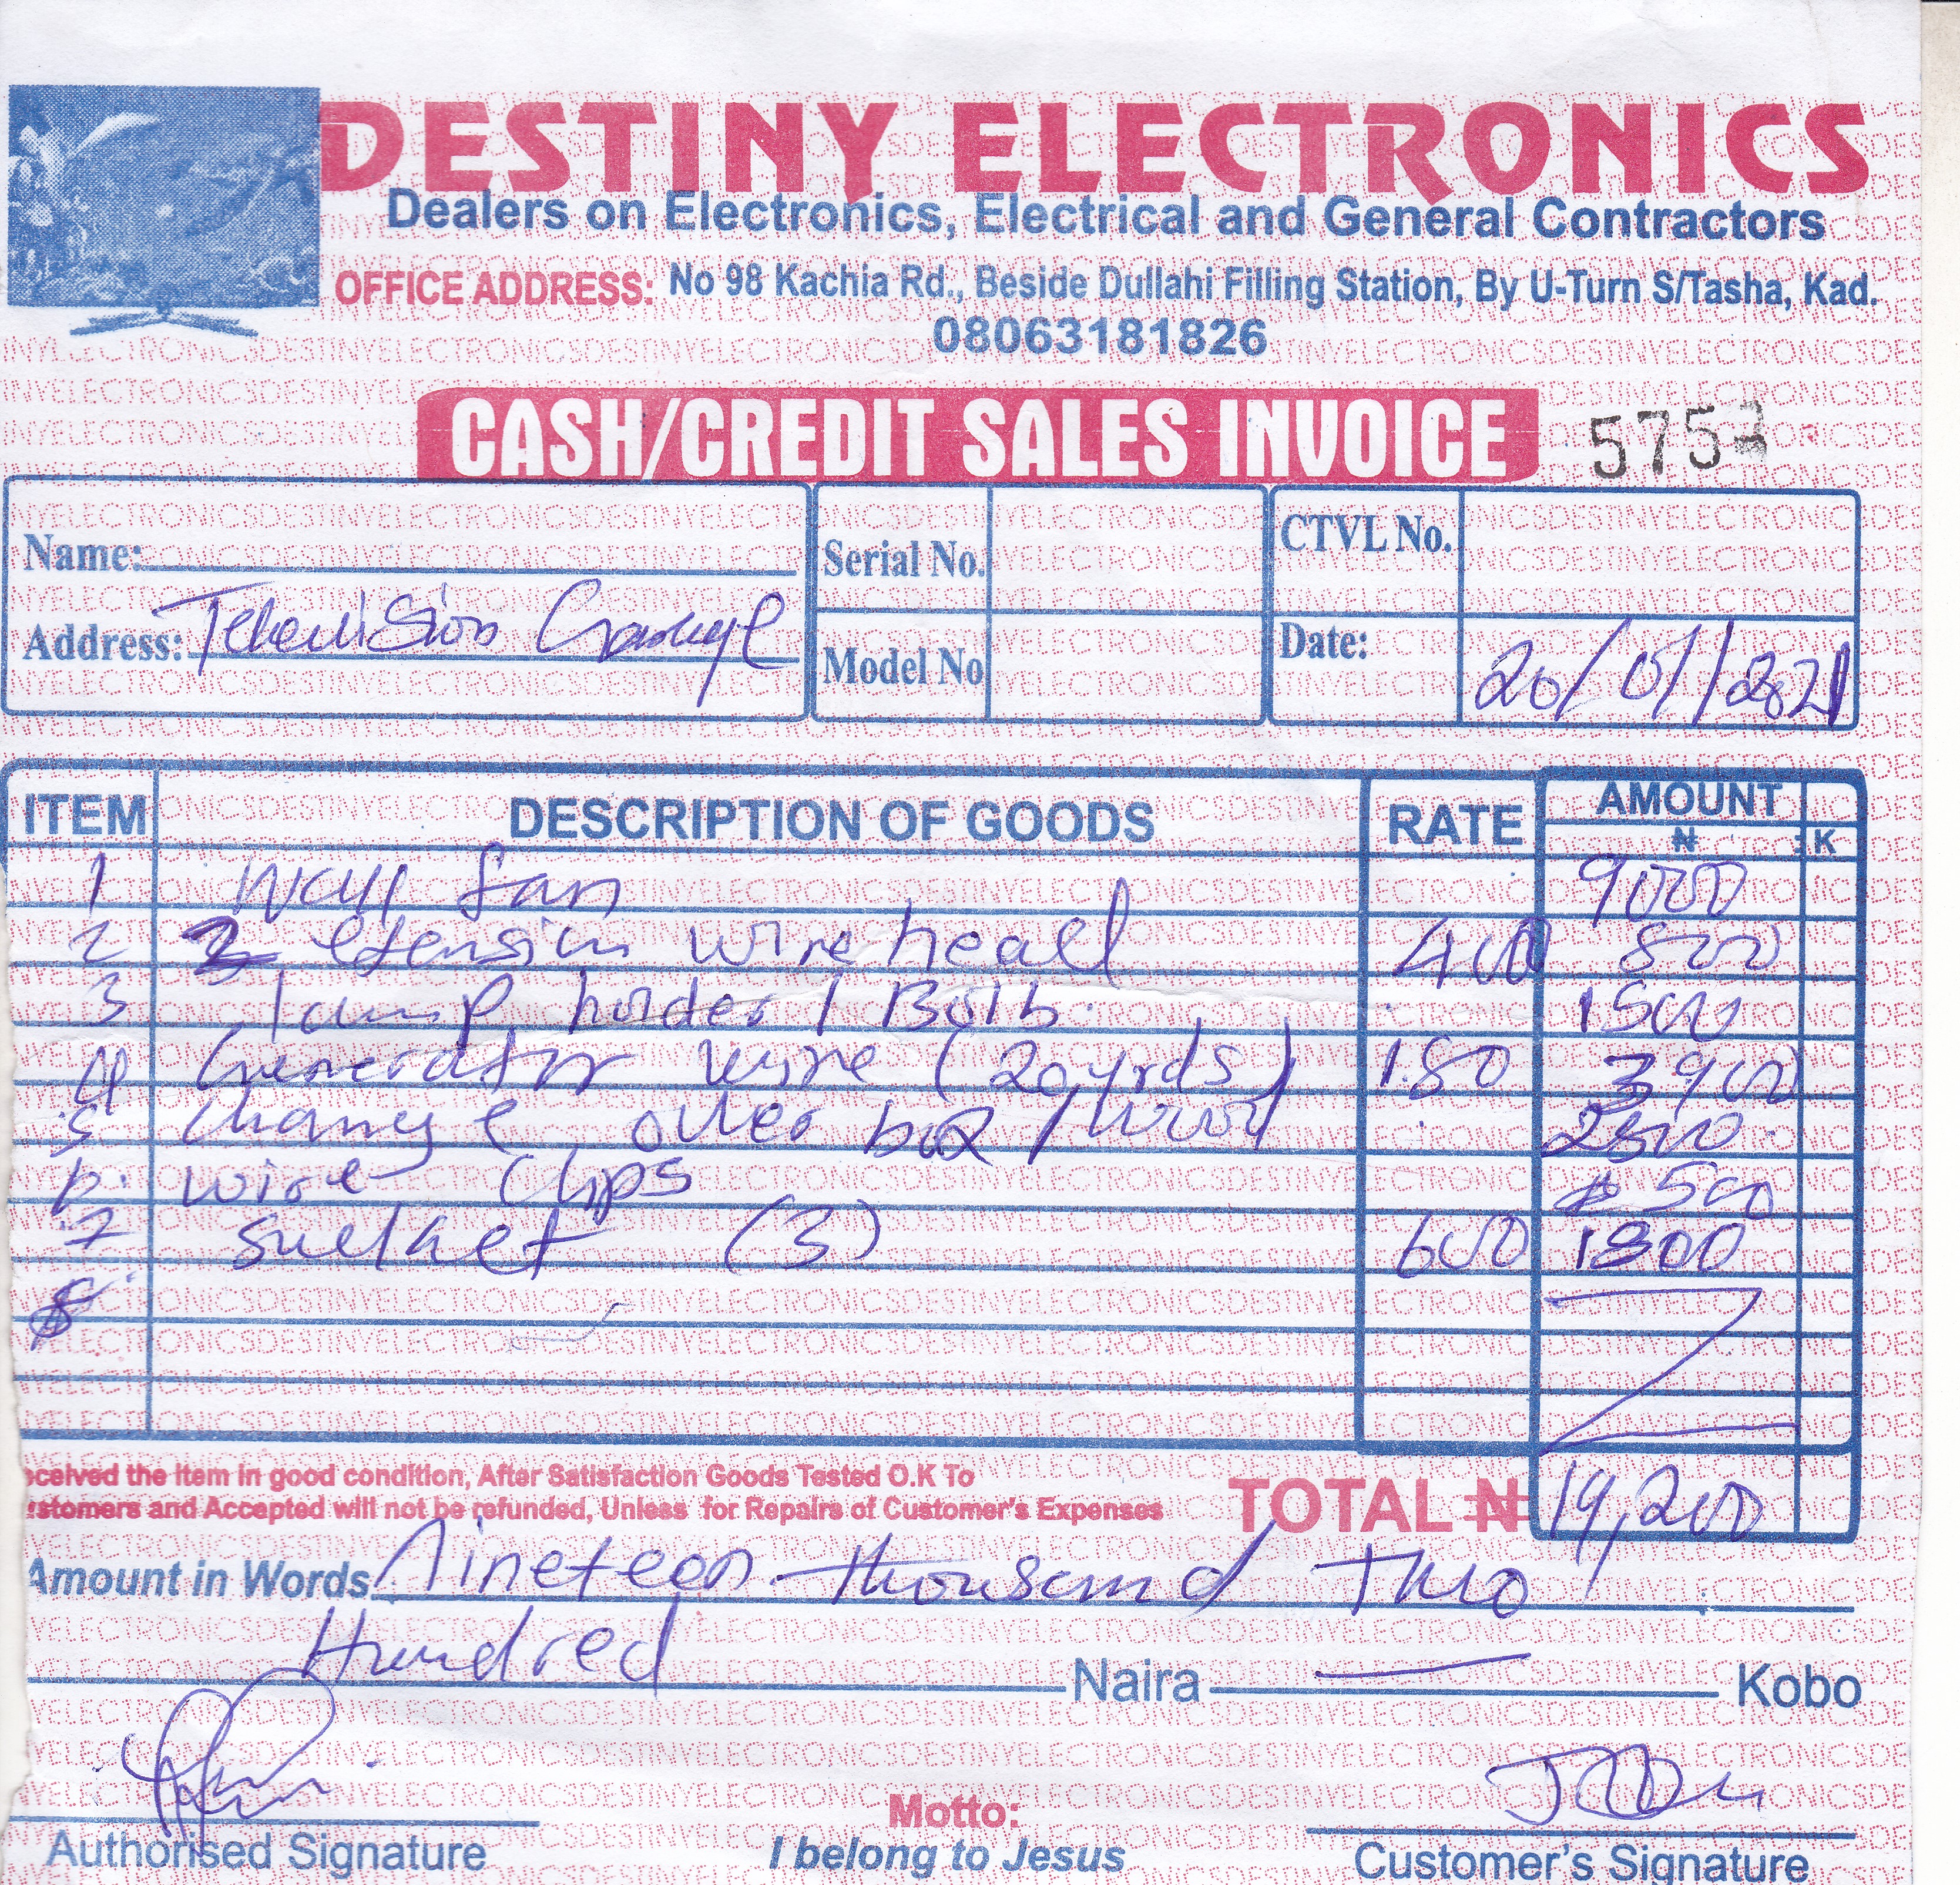 DESTINY ELECTRONICS
Dealers on Electronics, Electrical and General Contractors
OFFICE ADDRESS: No 98 Kachia Rd., Beside Dullahi Filling Station, By U-Turn S/Tasha, Kad.
08063181826
CASH/CREDIT SALES INVOICE 5752
Name:
Address: Television
Serial No.
Model No
CTVL No.
Date: 20/01/2021
ITEM DESCRIPTION OF GOODS RATE AMOUNT
₦ : K
1 Wall fan 9000
2 2 etension wire head 400 800
3 lamp holder / Bulb. 1500
4 Generator wire (20 yrds) 180
5 Change over box / wood
6. wire clips 500
7 (3) 600 1800
8
ceived the item in good condition, After Satisfaction Goods Tested O.K To
stomers and Accepted will not be refunded, Unless for Repairs of Customer's Expenses
TOTAL ₦ 19,200
Amount in Words Nineteen thousand Two
Hundred Naira — Kobo
Authorised Signature
Motto:
I belong to Jesus
Customer's Signature